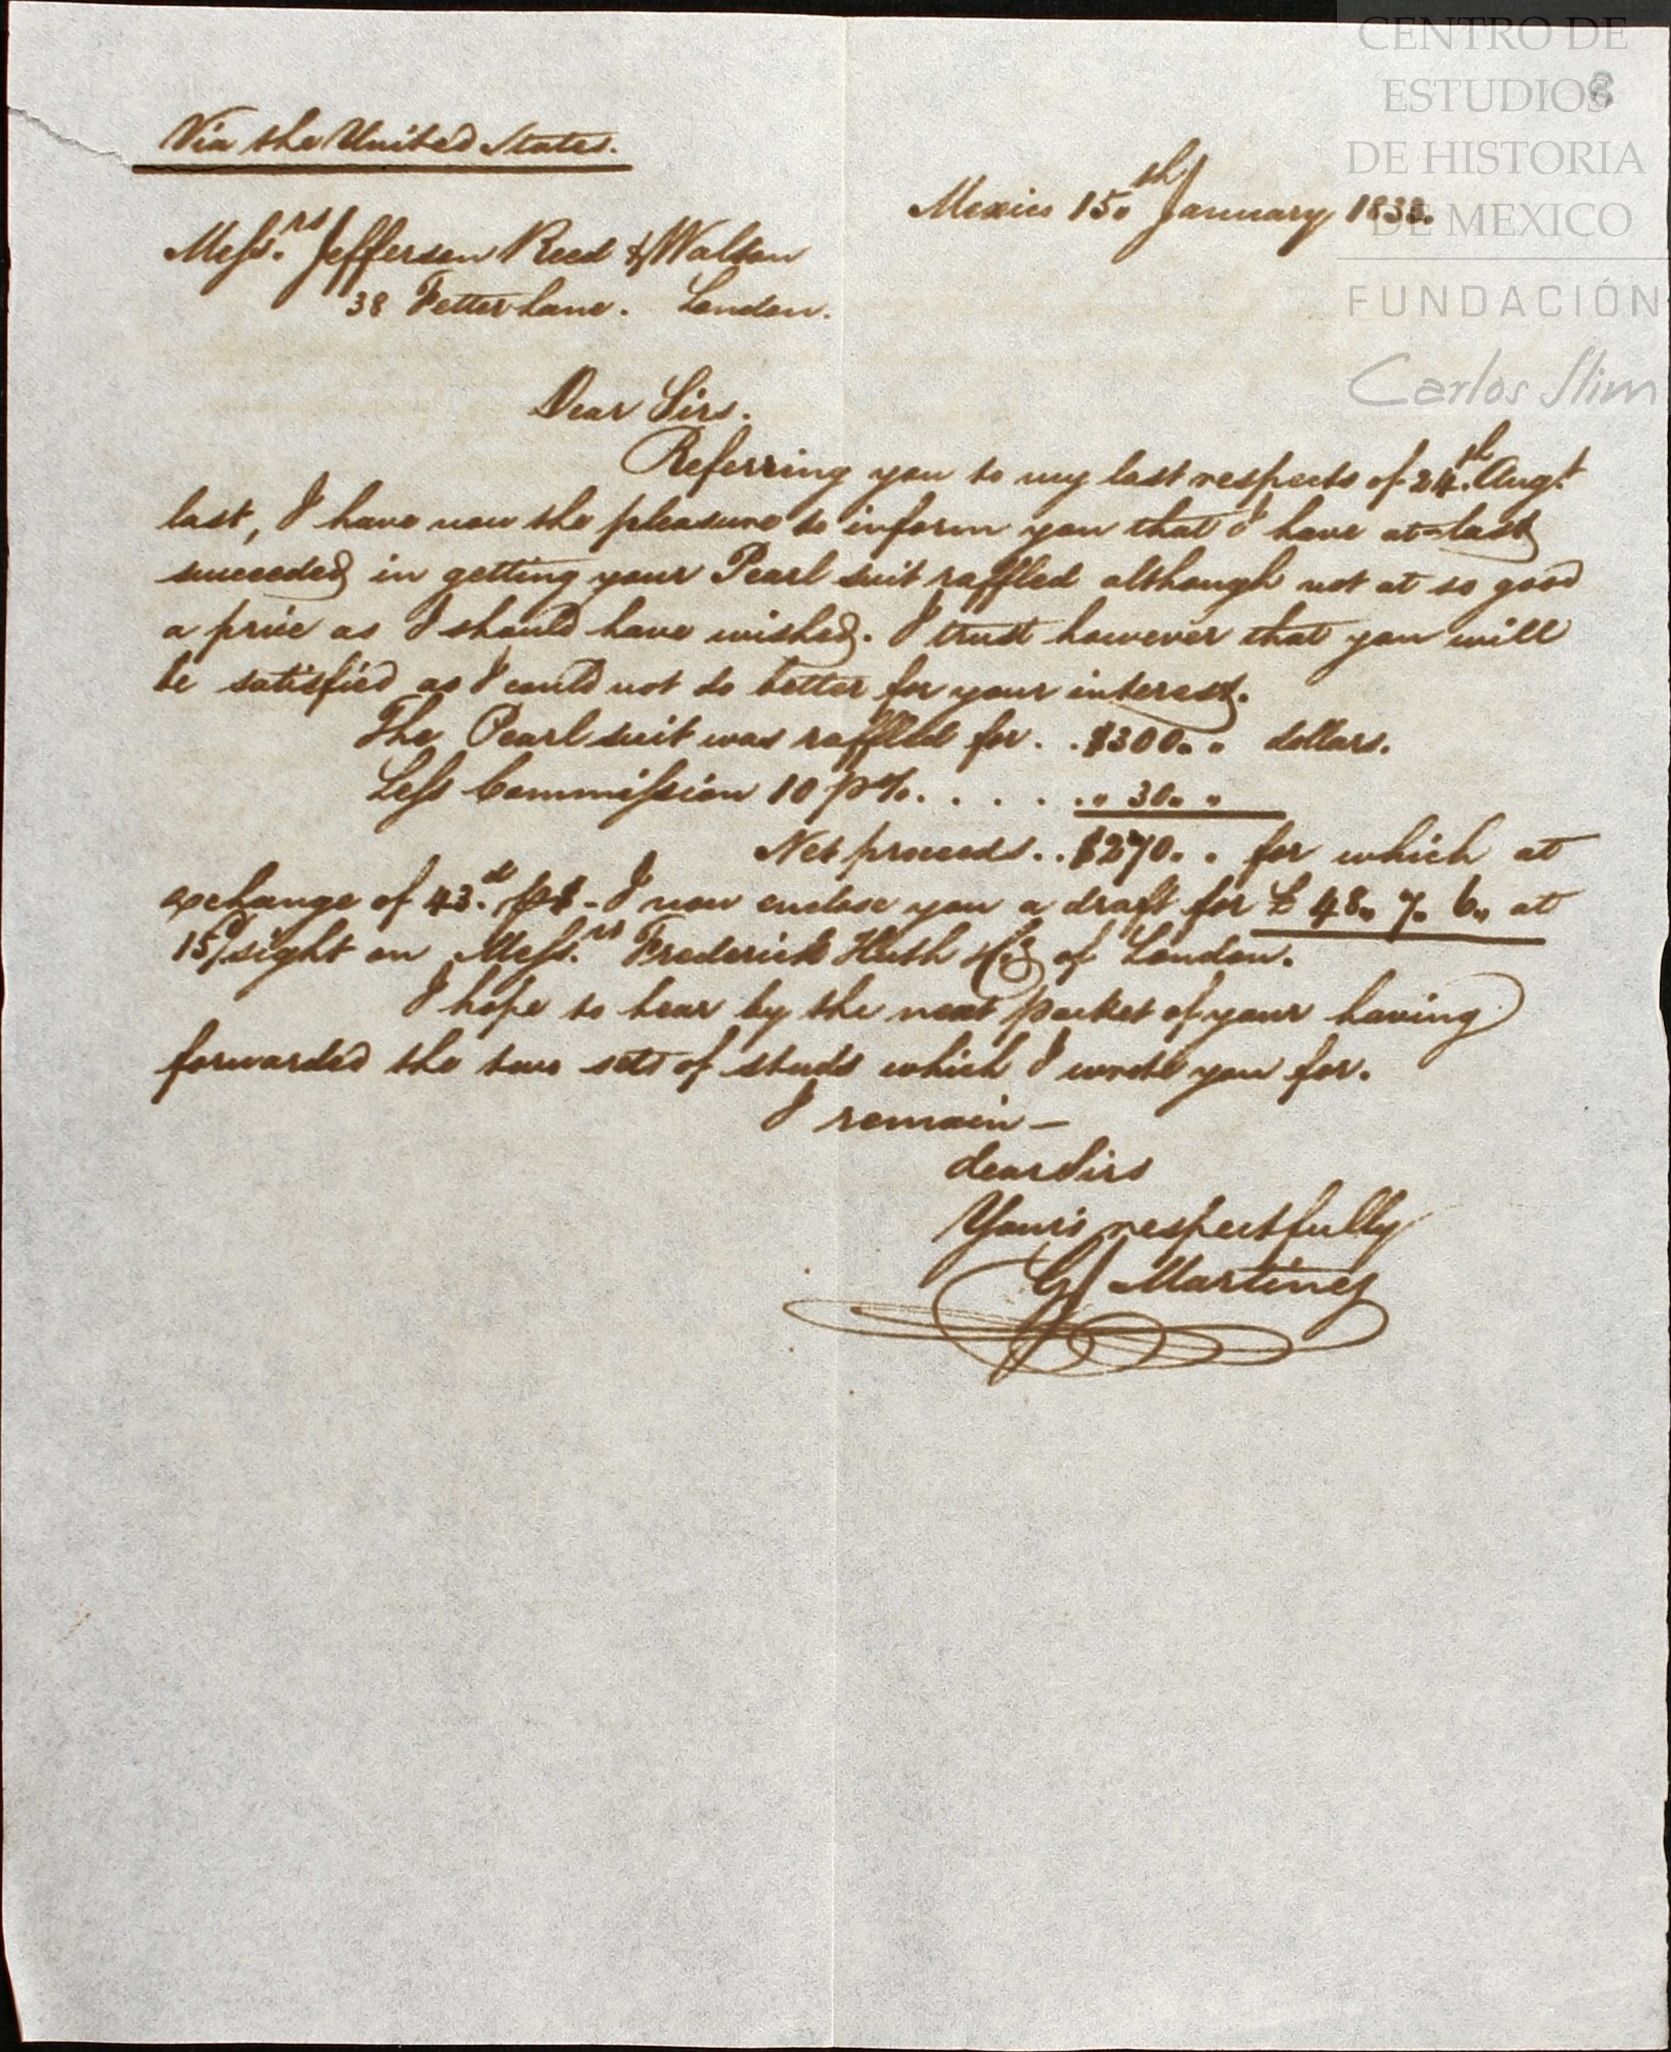 CENTRO DE
ESTUDIOS
DE HISTORIA
DE MEXICO
FUNDACIÓN
Carlos Slim
Via the United States.
Mexico 15.th January 1838.
Messrs. Jefferson Reed & Walton
38 Fetter Lane. London.
Dear Sirs.
Referring you to my last respects of 24.th Augt.
last, I have now the pleasure to inform you that I have at-last
succeeded in getting your Pearl suit raffled although not at so good
a price as I should have wished. I trust however that you will
be satisfied as I could not do better for your interest.
The Pearl suit was raffled for . . $300.. " dollars.
Less Commission 10 p%. . . . . ." 30" "
Net proceeds . . $270. . for which at
exchange of 43.d p$ - I now enclose you a draft for £ 48" 7" 6" at
15d/ sight on Messrs. Frederick Huth & Co of London.
I hope to hear by the next packet of your having
forwarded the two sets of studs which I wrote you for.
I remain —
dear Sirs
Yours respectfully
Martinez